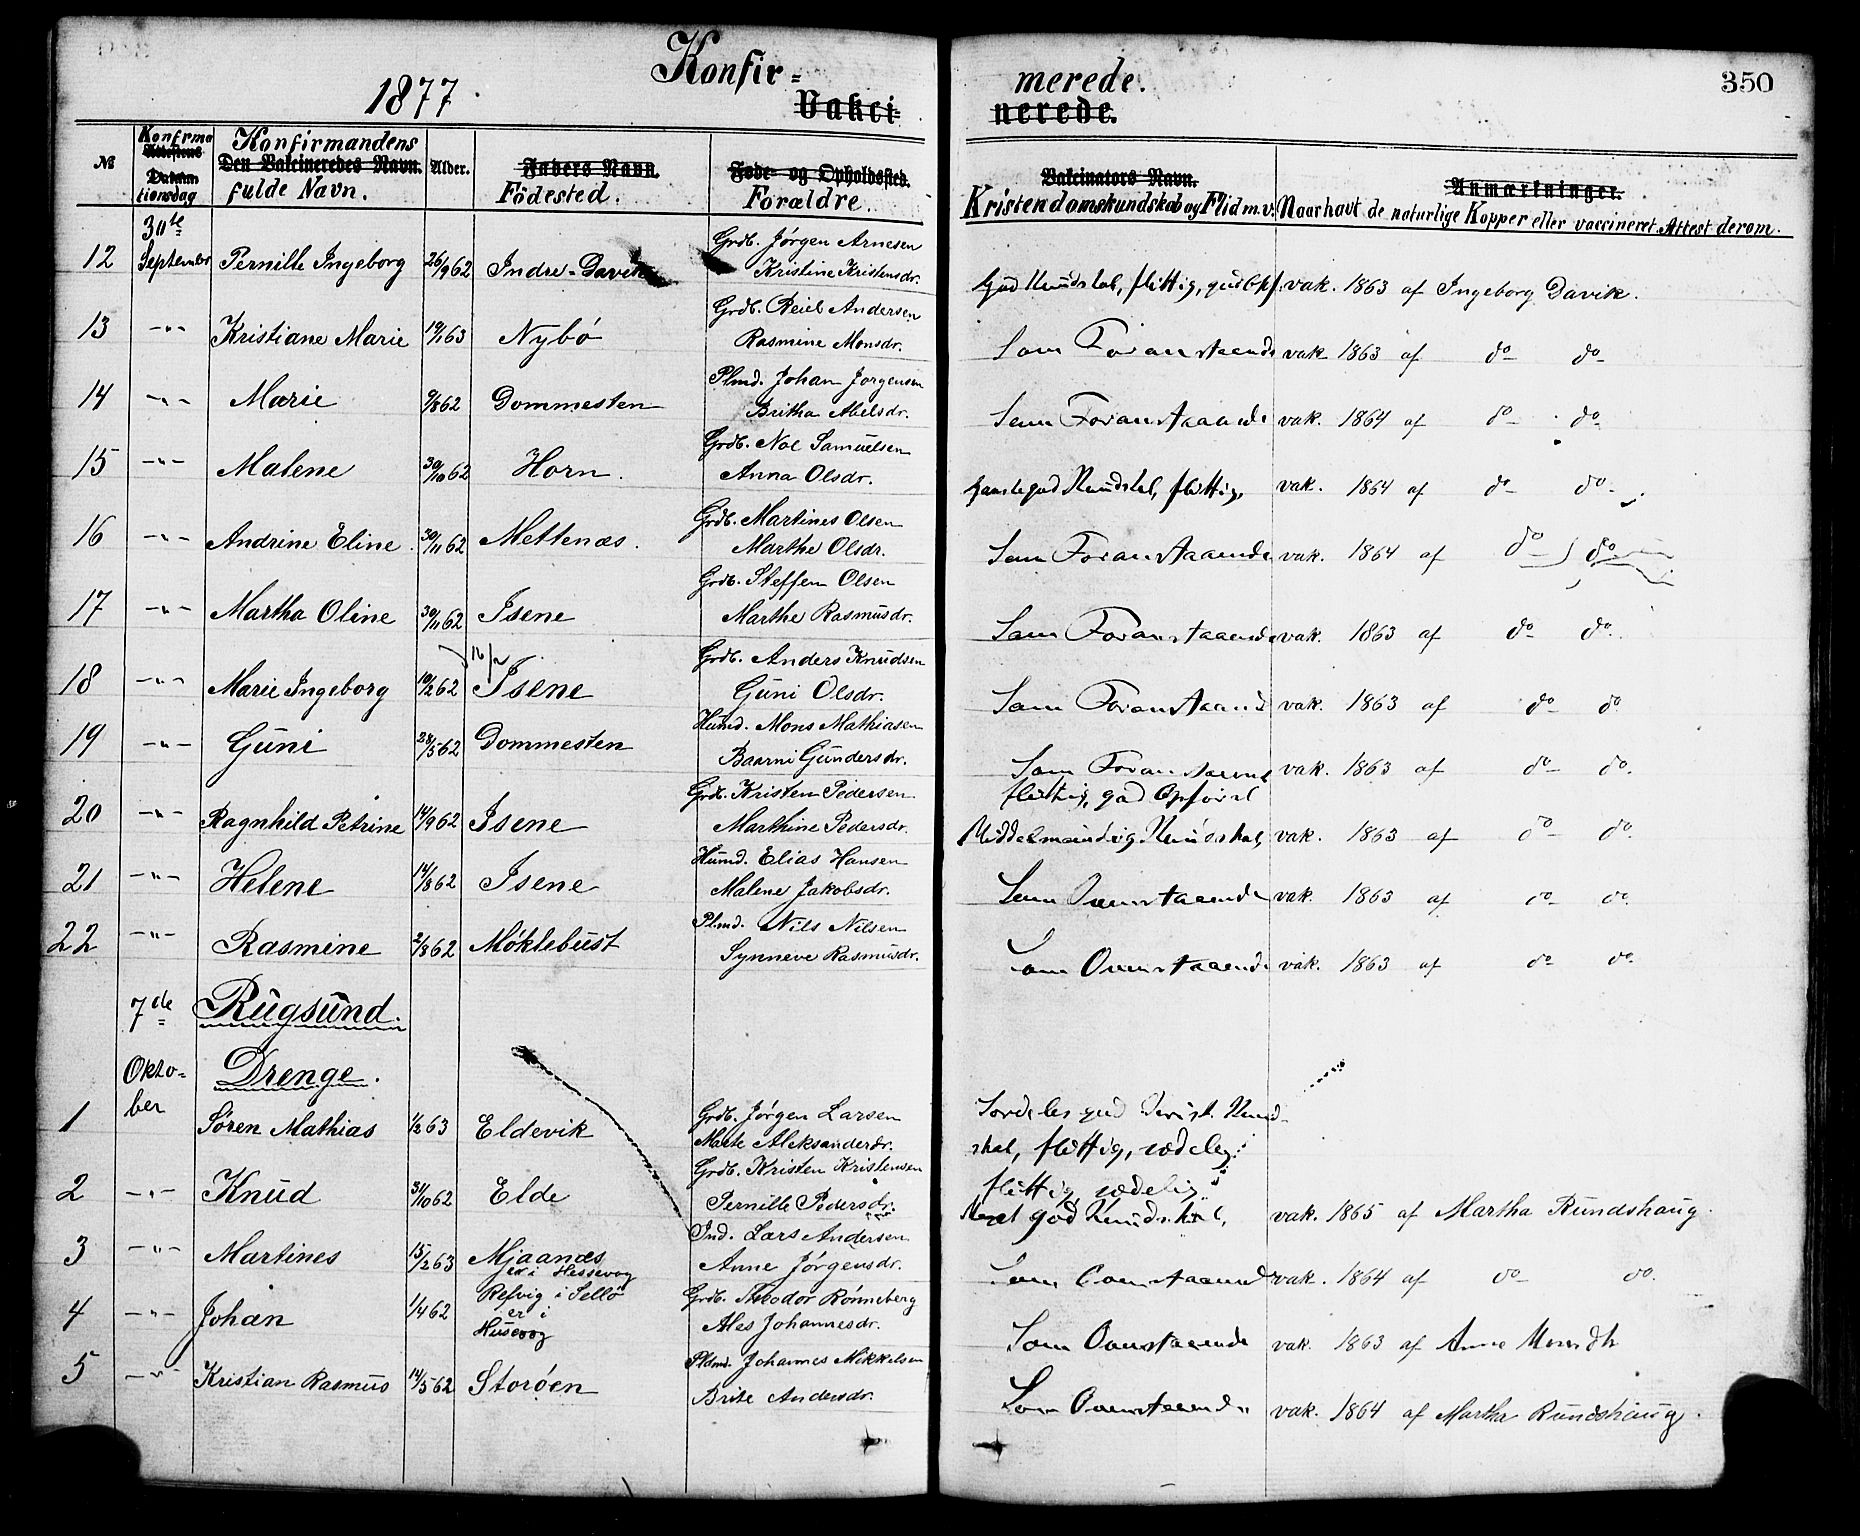 Konfir= merede.
350
1877.
Vakci nerede.
№ Konfirma Attestens Datum tionsdag Konfirmandens Den Vakcineredes Navn. fulde Navn. Alder. Faders Navn. Födested. Føde- og Opholdssted. Forældre. Vakcinators Navn. Kristendomskundskab og Flid m.v. Anmærkninger. Naar havt de naturlige Kopper eller vaccineret Attest derom.
30te
Grdb. Jørgen Arnesen
12 September Pernille Ingeborg 26/9 62 Indre-Davik Kristine Kristensdr. God Kundskab, flittig, vak. 1863 af Ingeborg Davik.
Grdb. Andersen
13 -"- Kristiane Marie 63 Nybö Rasmine Monsdr. Som Foranstaaende vak. 1863 af do do
Plmd. Johan Jørgensen
14 -"- Marie 9/8 62 Dommesten Britha Abelsdr. Som Foranstaaende vak. 1864 af do do
Grdb. Noe Samuelsen
15 -"- Malene 30/10 62 Horn. Anna Olsdr. Ganske god Kundskab, flittig, vak. 1864 af do do
Grdb. Martines Olsen
16 -"- Andrine Eline. 30/11 62 Mettenæs. Marthe Olsdr. Som Foranstaaende vak. 1864 af do do
Grdb. Steffen Olsen
17 -"- Martha Oline 30/11 62 Isene Marthe Rasmusdr. Som Foranstaaende vak. 1863 af do do
16/2
Grdb. Anders Knudsen
18 -"- Marie Ingeborg 10/2 62 Isene Guni Olsdr. Som Foranstaaend vak. 1863 af do do
Humd. Mons Mathiasen
19 -"- Guni 28/5 62 Dommesten Baarni Gundersdr. Som Foranstaaend vak. 1863 af do do
Grdb. Kristen Pedersen flittig, god Opførsel
20 -"- Ragnhild Petrine 14/9 62 Isene Marthine Pedersdr. Middelmaadig Kundskab, vak. 1863 af do do
Humd. Elias Hansen
21 -"- Helene 14/8 62 Isene Malene Jakobsdr. Som Ovenstaaende vak. 1863 af do do
Plmd. Nils Nilsen
22 -"- Rasmine 2/8 62 Møklebust Synneve Rasmusdr. Som Ovenstaaende vak. 1863 af do do
7de Rugsund.
Okto- Drenge.
ber
Grdb. Jørgen Larsen Særdeles god Krist. Kund-
1 Søren Mathias 1/2 63 Eldevik Marte Aleksanderdr. skab, flittig, sædelig.
Grdb. Kristen Kristensen flittig, sædelig
2 -"- Knud 31/10 62 Elde Pernille Pedersdr. Meget god Kundskab, vak. 1865 af Martha Rundshaug.
Ind. Lars Andersen
3 -"- Martines 15/2 63 Mjaanæs Anne Jörgensdr. Som Ovenstaaende vak. 1864 af do do
er i Hessevog
Refvig i Sellö Grdb. Theodor Rönneberg
4 -"- Johan 1/4 62 er i Ales Johannesdr. Som Ovenstaaende vak. 1863 af Anne
Husevog
Pldmd. Johannes Mikkelsen
5 -"- Kristian Rasmus 14/5 62 Storöen Brite Andersdr. Som Ovenstaaende vak. 1864 af Martha Rundshaug.